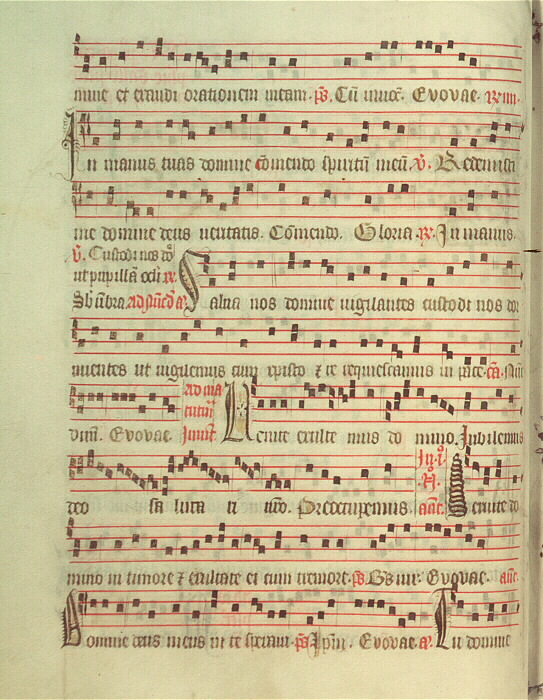 mine et exaudi orationem meam. ps. Cū invoc̄. Evovae. ꝶ.
In manus tuas domine cōmendo spiritū meū. v̄. Redemisti
me domine deus veritatis. Cōmendo. Gloria. ꝶ. In manus.
v̄. Custodi nos dō
ut pupillā oculi. ꝶ.
Sb ūbra. ad nūc d̄. a.
Salva nos domine vigilantes custodi nos dor
mientes ut vigilemus cum xpisto ⁊ re requiescamus in pace. cā. Nūc
dimi. Evovae. Ad ma
tutin̄
Invit̄
Venite exulte mus do mino. Jubilemus
deo sa luta ri nrō. Preoccupemus. In. i. N. ant. Servite do
mino in timore ⁊ exultate ei cum tremore. ps. Evovae. ant.
Domine deus meus in te speravi. ps. Ipm̄. Evovae. a. In domine